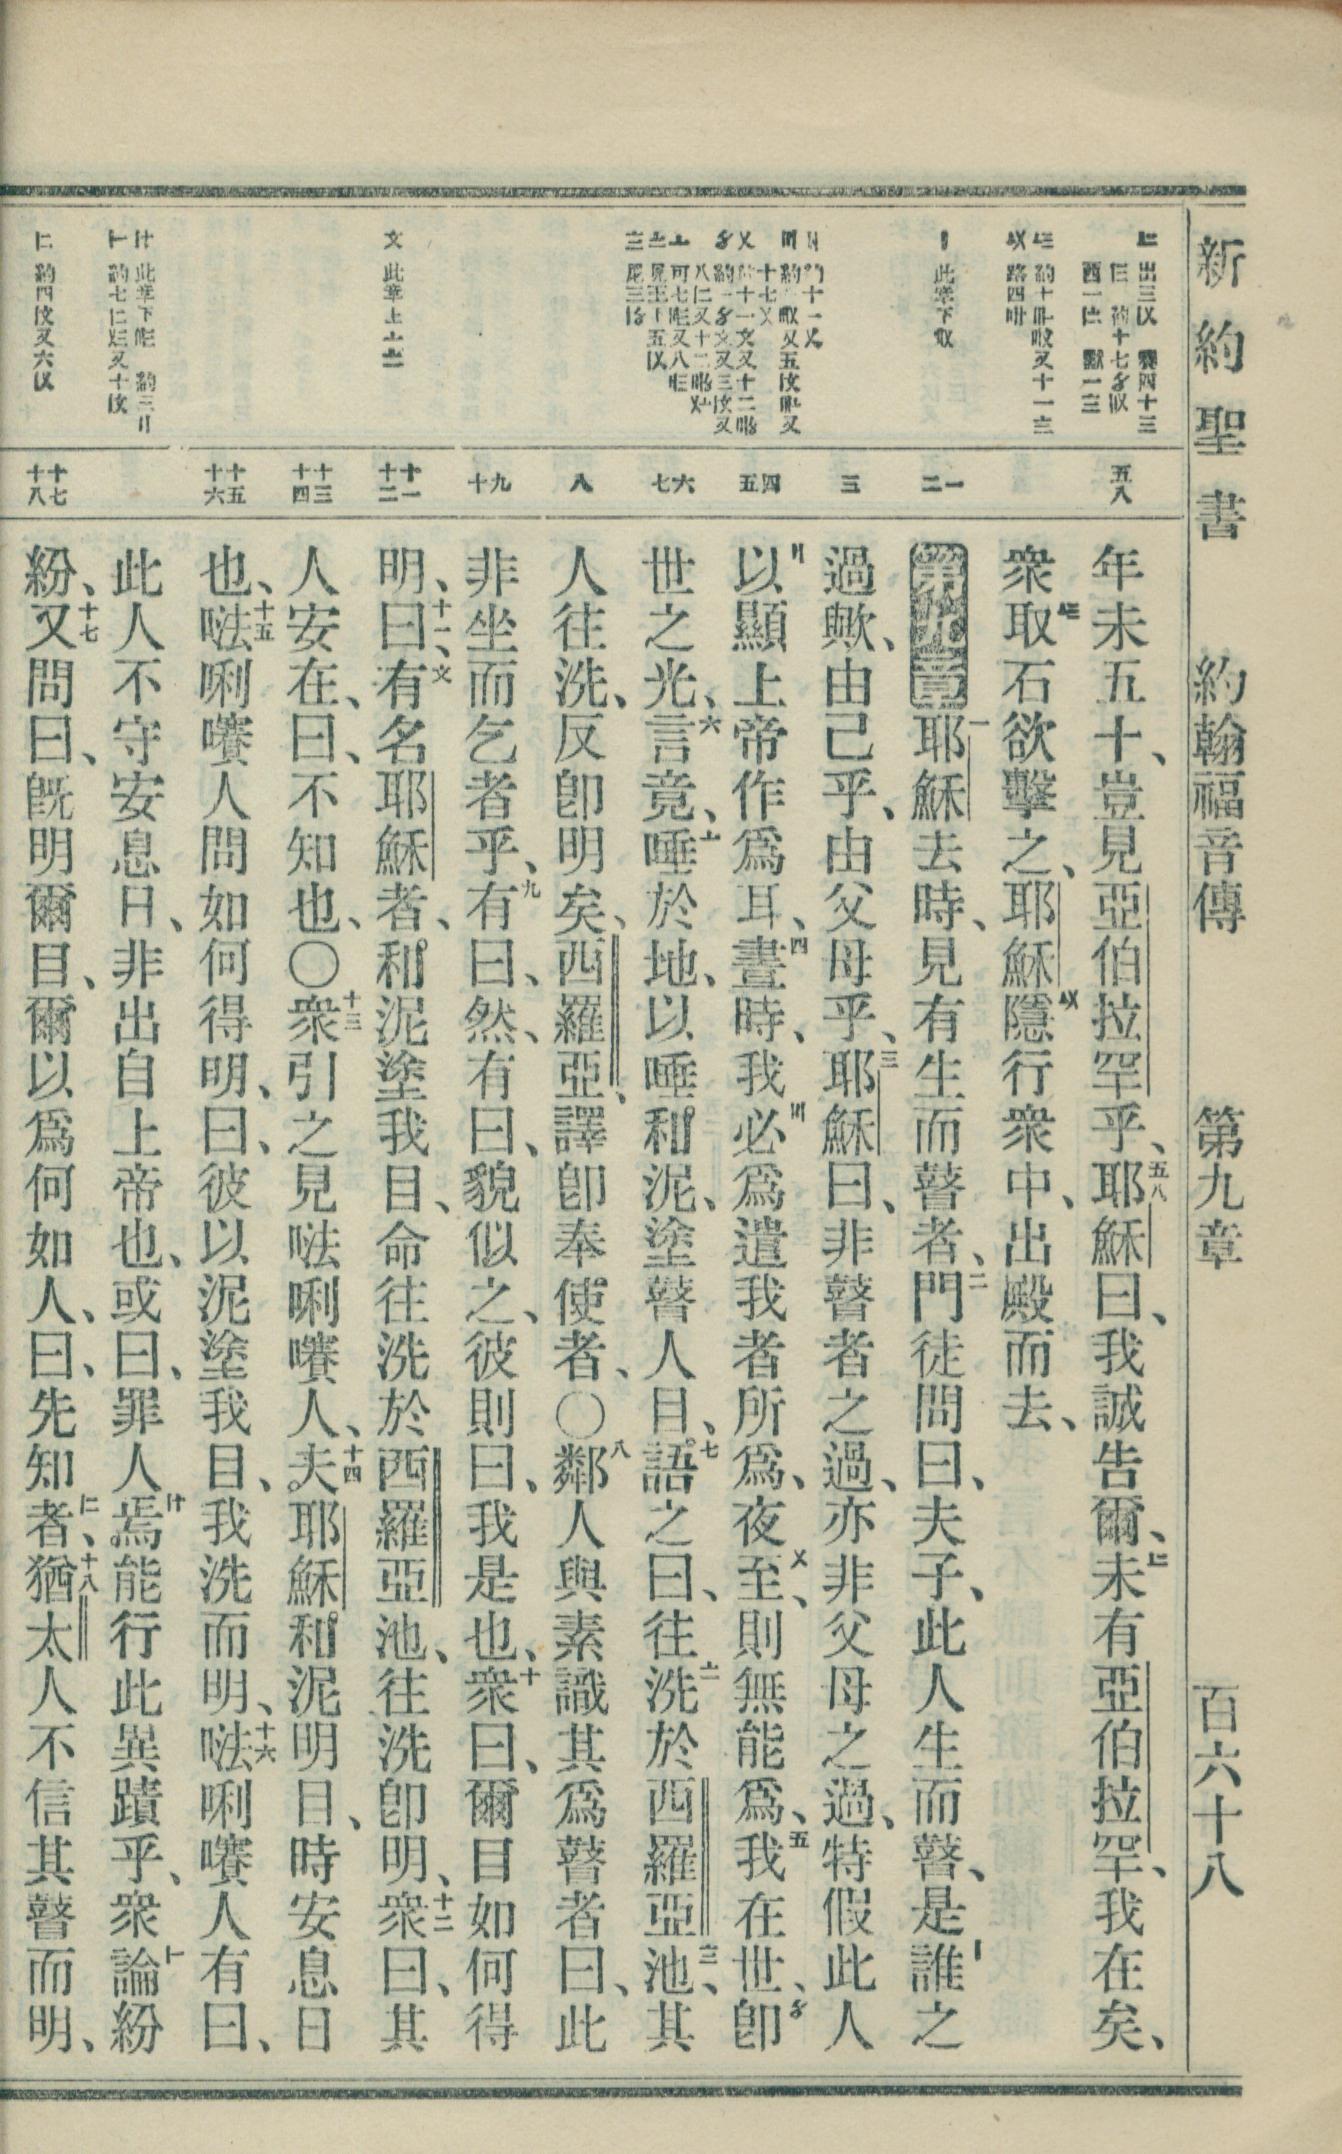 新約聖書 約翰福音傳 第九章 百六十八
五八
年未五十、豈見亞伯拉罕乎、五八耶穌曰、我誠告爾、未有亞伯拉罕、我在矣、
衆取石欲擊之、耶穌隱行衆中、出殿而去、
一
二
第九章 一耶穌去時、見有生而瞽者、二門徒問曰、夫子、此人生而瞽、是誰之
三
過歟、由己乎、由父母乎、三耶穌曰、非瞽者之過、亦非父母之過、特假此人
四
五
以顯上帝作爲耳、四晝時、我必爲遣我者所爲、夜至、則無能爲、五我在世、卽
六
七
世之光、六言竟、唾於地、以唾和泥、塗瞽人目、七語之曰、往洗於西羅亞池、其
八
人往洗、反卽明矣、西羅亞、譯卽奉使者、〇八鄰人與素識其爲瞽者曰、此
九
十
非坐而乞者乎、九有曰、然、有曰、貌似之、彼則曰、我是也、十衆曰、爾目如何得
十一
十二
明、十一曰、有名耶穌者、和泥塗我目、命往洗於西羅亞池、往洗卽明、十二衆曰、其
十三
十四
人安在、曰、不知也、〇十三衆引之見𠵽唎嚽人、十四夫耶穌和泥明目、時安息日
十五
十六
也、十五𠵽唎嚽人問如何得明、曰、彼以泥塗我目、我洗而明、十六𠵽唎嚽人有曰、
此人不守安息日、非出自上帝也、或曰、罪人焉能行此異蹟乎、衆論紛
十七
十八
紛、十七又問曰、旣明爾目、爾以爲何如人、曰、先知者、十八猶太人不信其瞽而明、